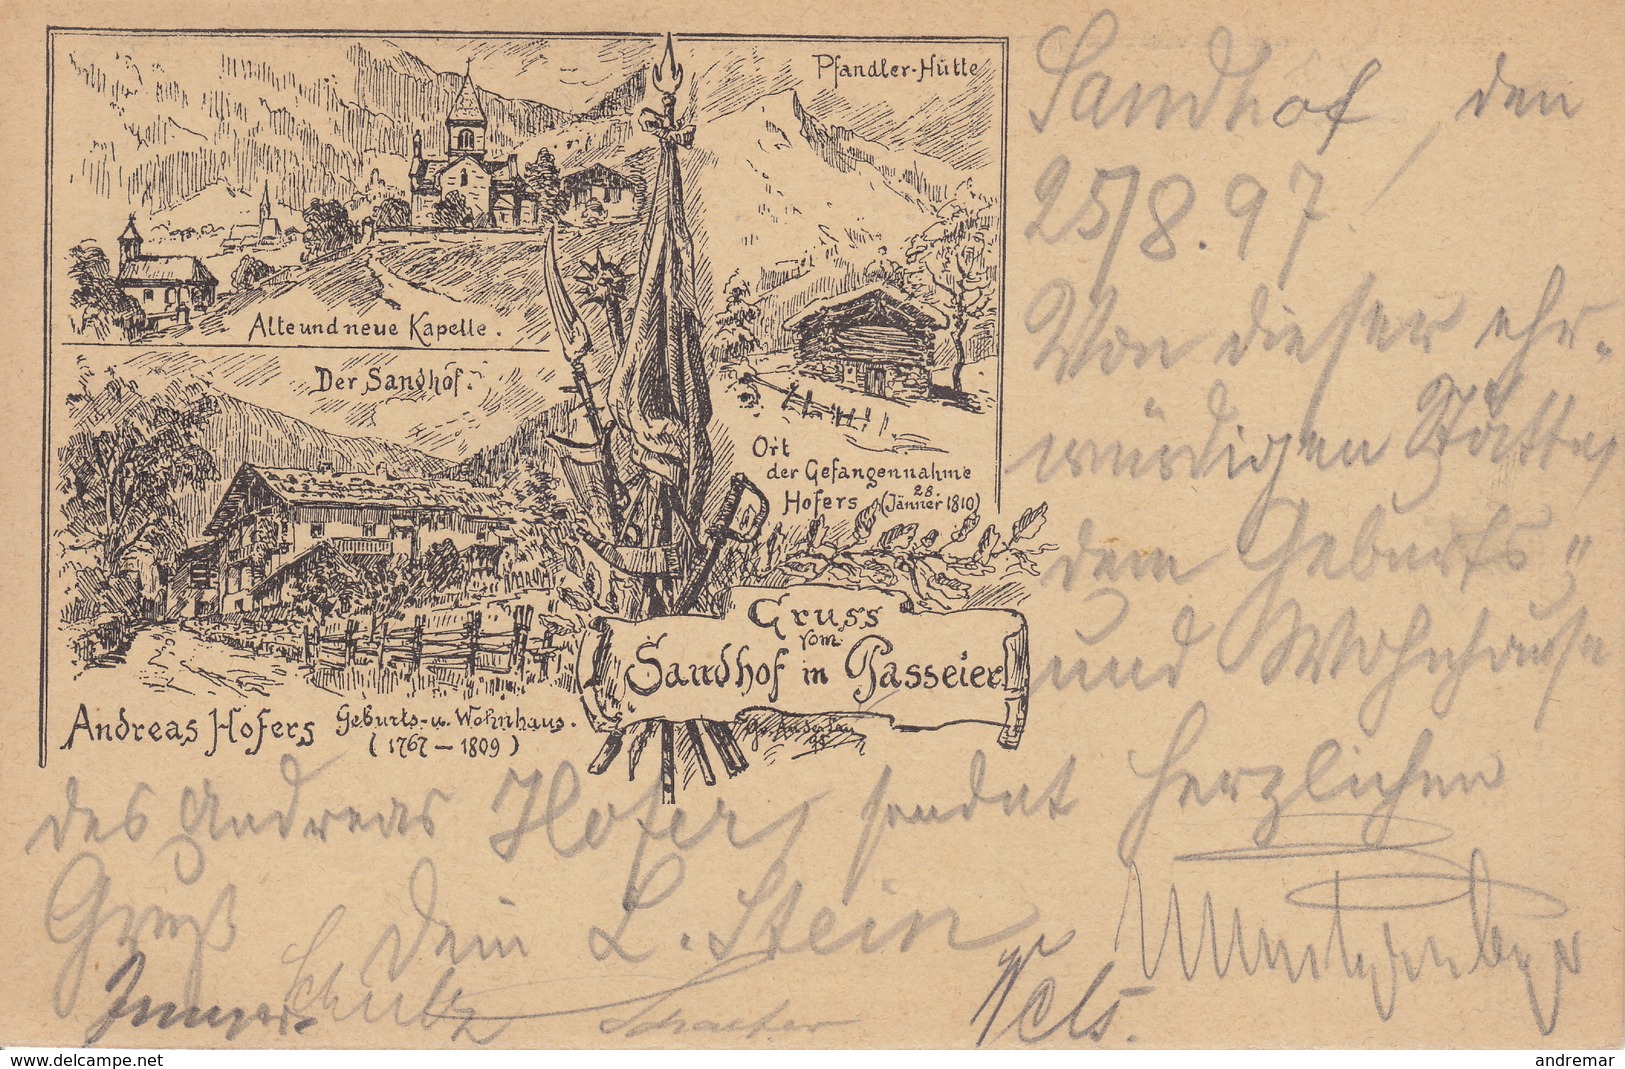 Pfandler-Hütte
Alte und neue Kapelle.
Der Sandhof.
Ort
der Gefangennahme
Hofers (28. Jänner 1810)
Gruss
vom
Sandhof in Passeier
Andreas Hofers Geburts- u. Wohnhaus.
(1767 – 1809)
Sandhof, den
25/8.97.
Von dieser ehr-
würdigen Stätte,
dem Geburts-
und Wohnhause
des Andreas Hofer, sendet herzlichen
Gruß Dein L. Stein
Schultz
Schaefer
delcampe.net
andremar